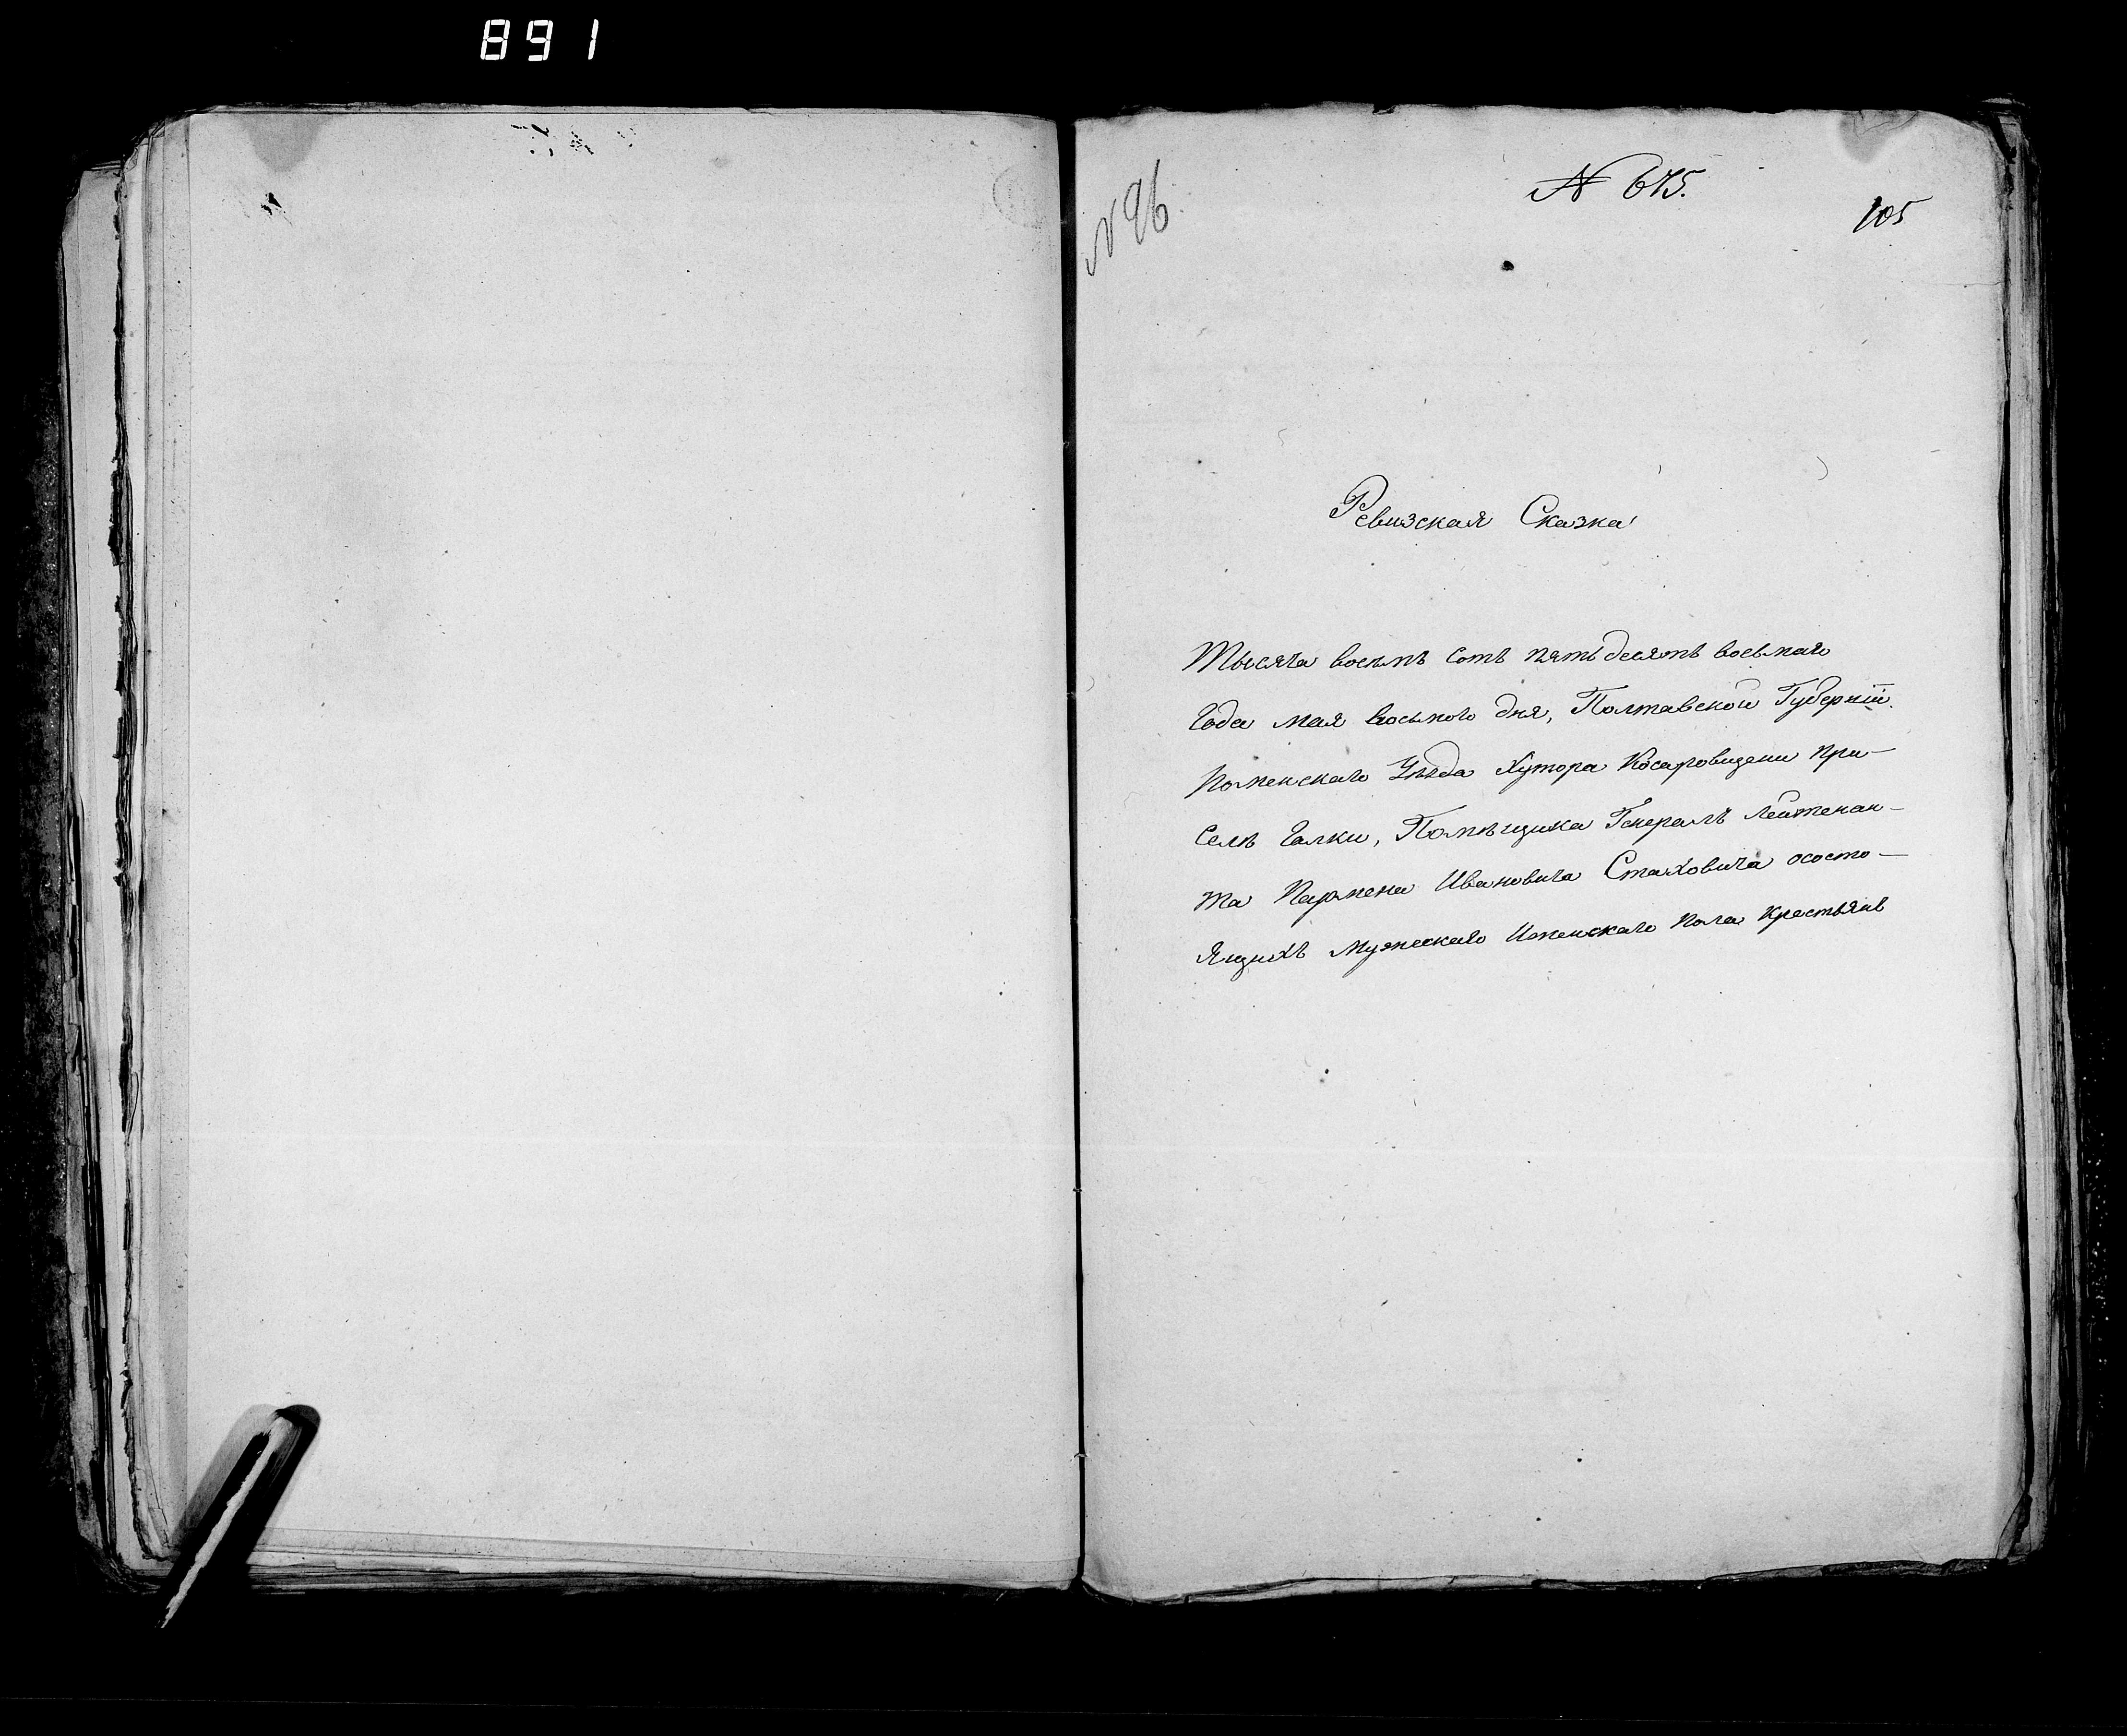 891
N 96.
N 675.
105
Ревизская Сказка
Тысяча восемъ сотъ пятьдесятъ восьмаго
года мая восьмого дня, Полтавской Губерніи
Роменскаго Уѣзда Хутора Косаровщени при-
селѣ Галки, Помѣщика Генералъ Лейтенан-
та Пармена Ивановича Стаховича ососто-
ящихъ Мужескаго Иженскаго пола крестьянъ